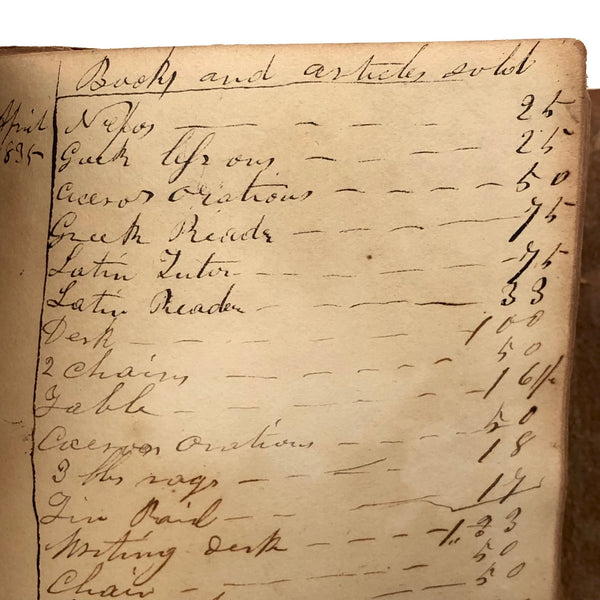 Books and articles sold
April 1835
Nepos — — — — — 25
Greek lessons — — — — 25
Ciceros orations — — — — 50
Greek Reader — — — — 75
Latin Tutor — — — — 75
Latin Reader — — — — 33
Desk — — — — — 100
2 Chairs — — — — 50
Table — — — — — 16
Ciceros orations — — — — 50
3 lbs rags — — — 18
Tin Paid — — — 17
Writing desk — — — —
Chair — — — — 50